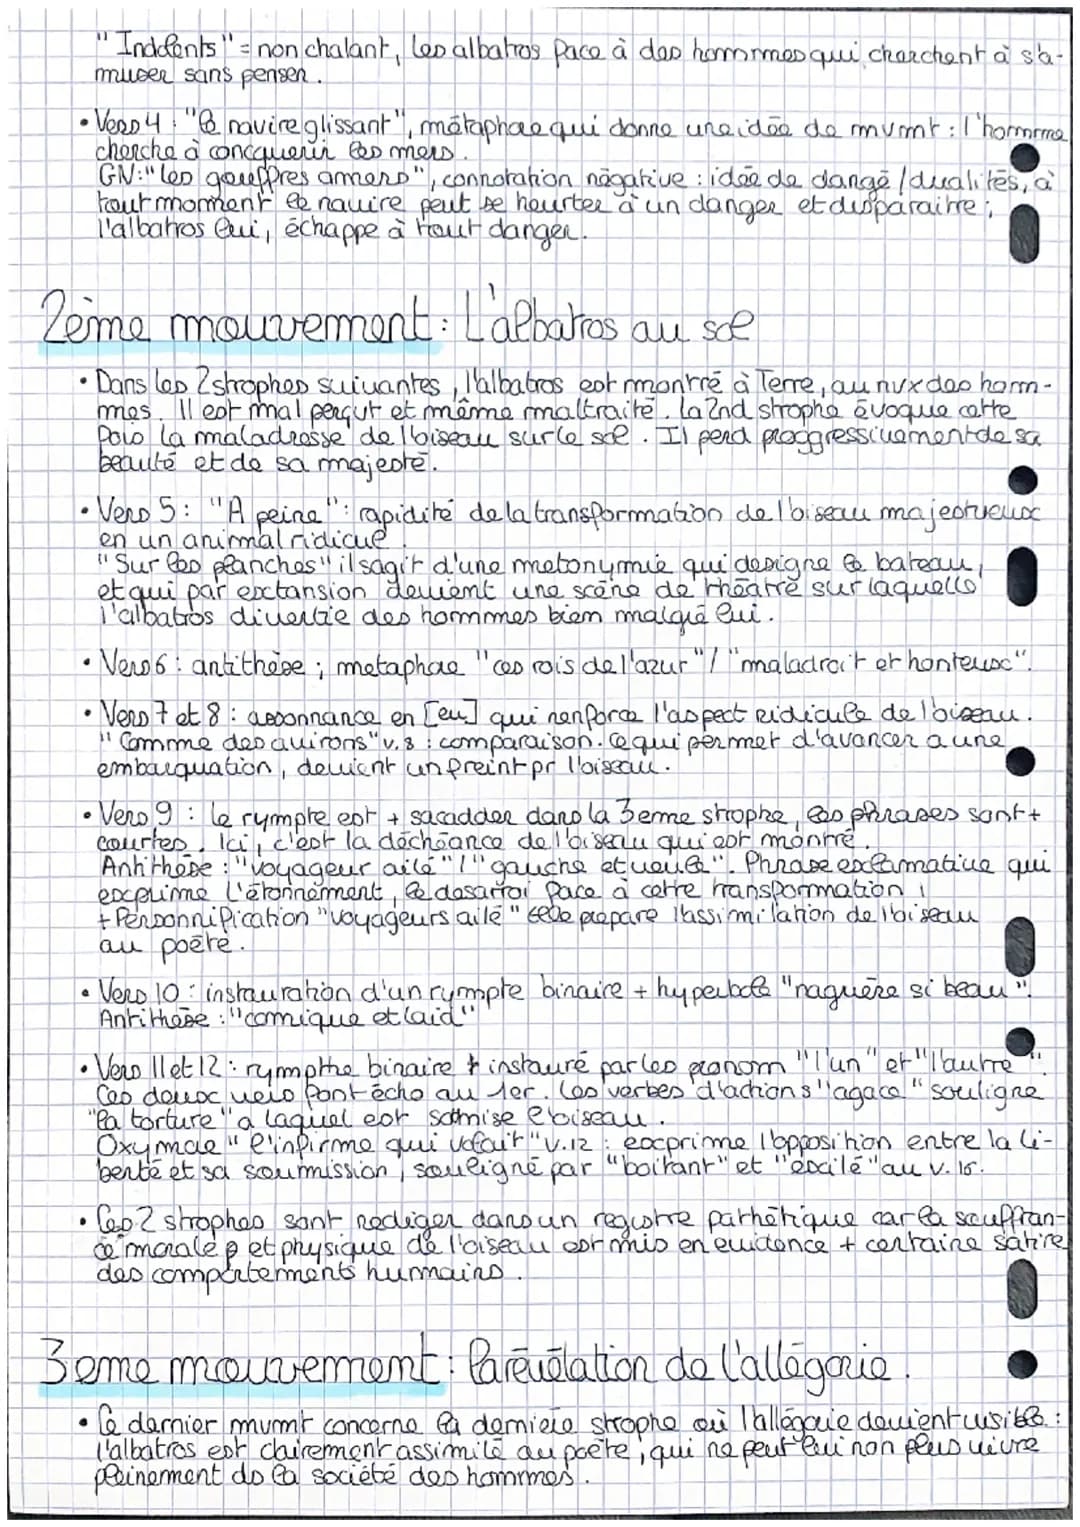 "Indolents" = non chalant, les albatros face à des hommmes qui cherchent à s'a-
muser sans penser.
• Vers 4 : "le navire glissant", métaphore qui donne une idée de mvmt : l'hommme
cherche à concquerir les mers.
GN : "les gouffres amers", connotation négative : idée de dangé / dualités, à
tout momment le navire peut se heurter à un danger et disparaitre ;
l'albatros lui, échappe à tout danger.
2ème mouvement : L'albatros au sol
• Dans les 2 strophes suivantes, l'albatros est montré à Terre, au nvx des homm-
mes. Il est mal perçut et même maltraité. La 2nd strophe évoque cette
fois la maladresse de l'oiseau sur le sol. Il perd proggressivement de sa
beauté et de sa majesté.
• Vers 5 : "A peine" : rapidité de la transformation de l'oiseau majestueux
en un animal ridicue.
"Sur les planches" il sagit d'une metonymie qui designe le bateau,
et qui par extansion devient une scène de théatre sur laquelle
l'albatros divertie des hommmes bien malgré lui.
• Vers 6 : antithèse ; metaphore "ces rois de l'azur" / "maladroit et honteux".
• Vers 7 et 8 : assonnance en [eu] qui renforce l'aspect ridicule de l'oiseau.
"Comme des avirons" v.8 : comparaison. Ce qui permet d'avancer a une
embarquation, devient un freint pr l'oiseau.
• Vers 9 : le rympte est + sacadder dans la 3eme strophe, les phrases sont +
courtes. Ici, c'est la déchéance de l'oiseau qui est montré.
Anthithèse : "voyageur ailé" / "gauche et veule". Phrase exclamative qui
exprime l'étonnément, le desarroi face à cette transformation !
+ Personnification "voyageurs ailé" elle prépare l'assimilation de l'oiseau
au poète.
• Vers 10 : instauration d'un rympte binaire + hyperbole "naguère si beau".
Antithèse : "comique et laid"
• Vers 11 et 12 : rympthe binaire + instauré par les pronom "l'un" et "l'autre".
Ces deux vers font écho au 1er. Les verbes d'actions "agace" souligne
"la torture" a laquel est soumise l'oiseau.
Oxymore "l'infirme qui volait" v.12 : exprime l'opposition entre la li-
berté et sa soumission, souligné par "boitant" et "exilé" au v. 15.
• Ces 2 strophes sont rediger dans un registre pathétique car la souffran-
ce morale et physique de l'oiseau est mis en evidence + certaine satire
des comportements humains.
3eme mouvement : La révélation de l'allégorie.
• Ce dernier mvmt concerne la derniere strophe où l'allégorie devient visible :
l'albatros est clairement assimilé au poète ; qui ne peut lui non plus vivre
pleinement ds la société des hommmes.